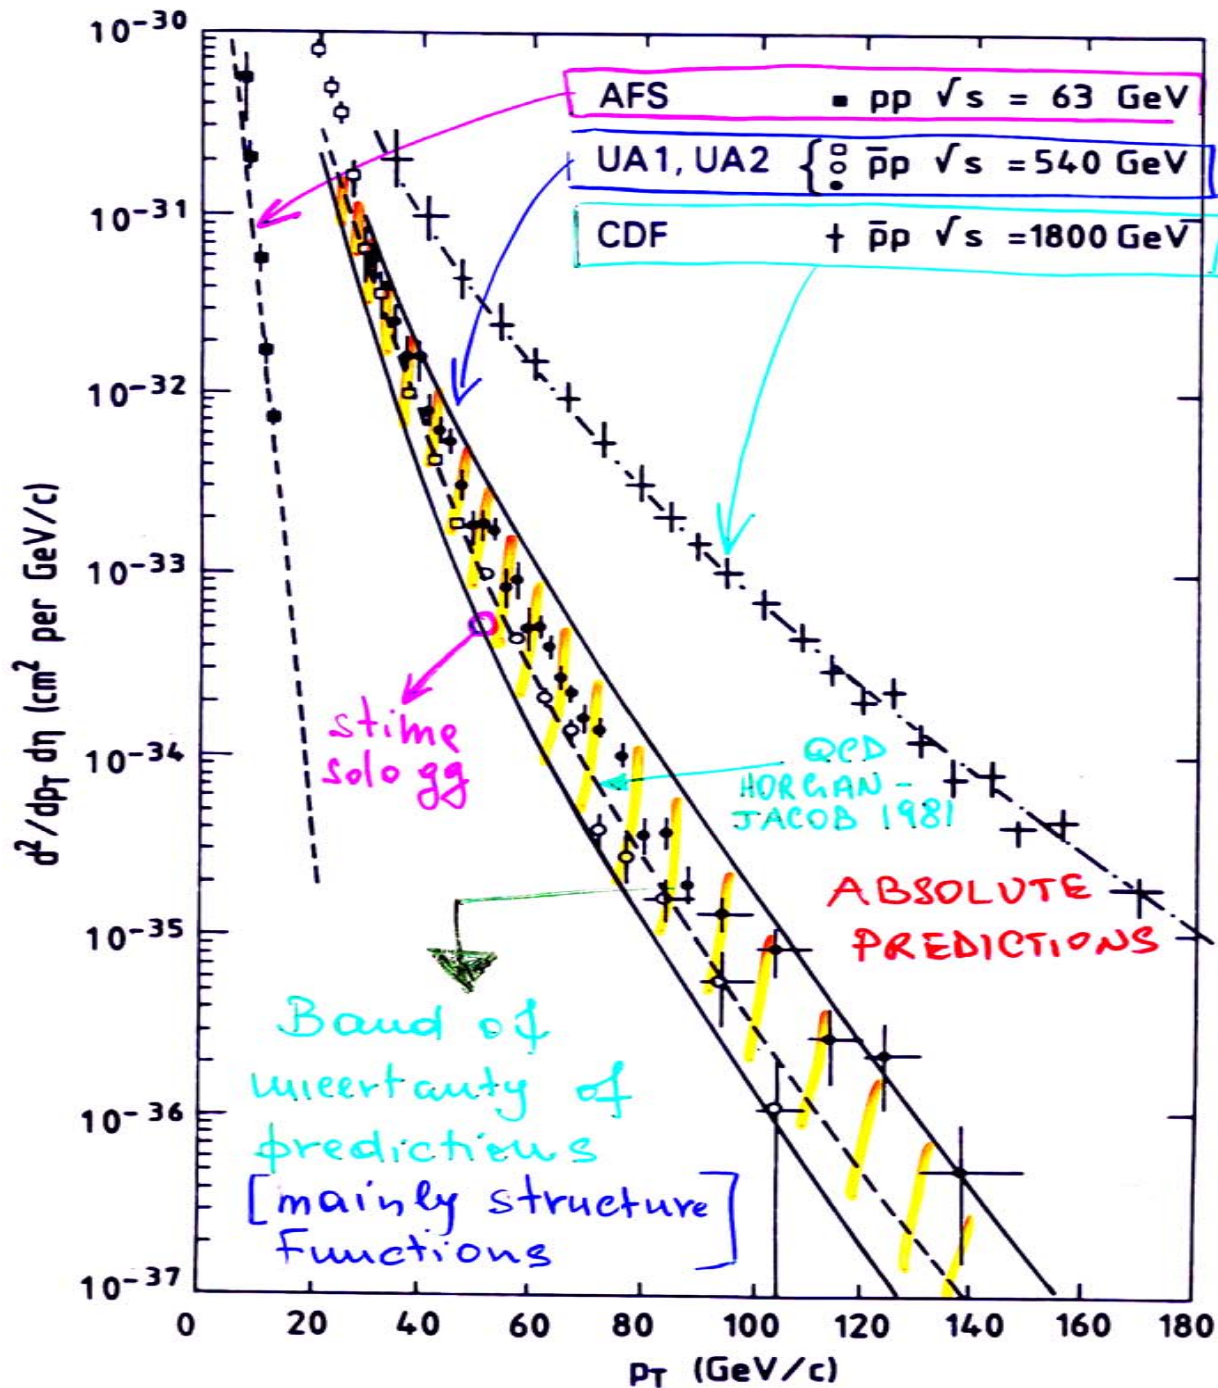 10⁻³⁰
10⁻³¹
10⁻³²
10⁻³³
10⁻³⁴
10⁻³⁵
10⁻³⁶
10⁻³⁷
d²/dp_T dη (cm² per GeV/c)
AFS ▪ pp √s = 63 GeV
UA1, UA2 { □ ○ • p̄p √s = 540 GeV
CDF + p̄p √s =1800 GeV
stime
solo gg
QCD
HORGAN -
JACOB 1981
ABSOLUTE
PREDICTIONS
Band of
uncertanty of
predictions
[mainly structure
Functions]
0 20 40 60 80 100 120 140 160 180
p_T (GeV/c)